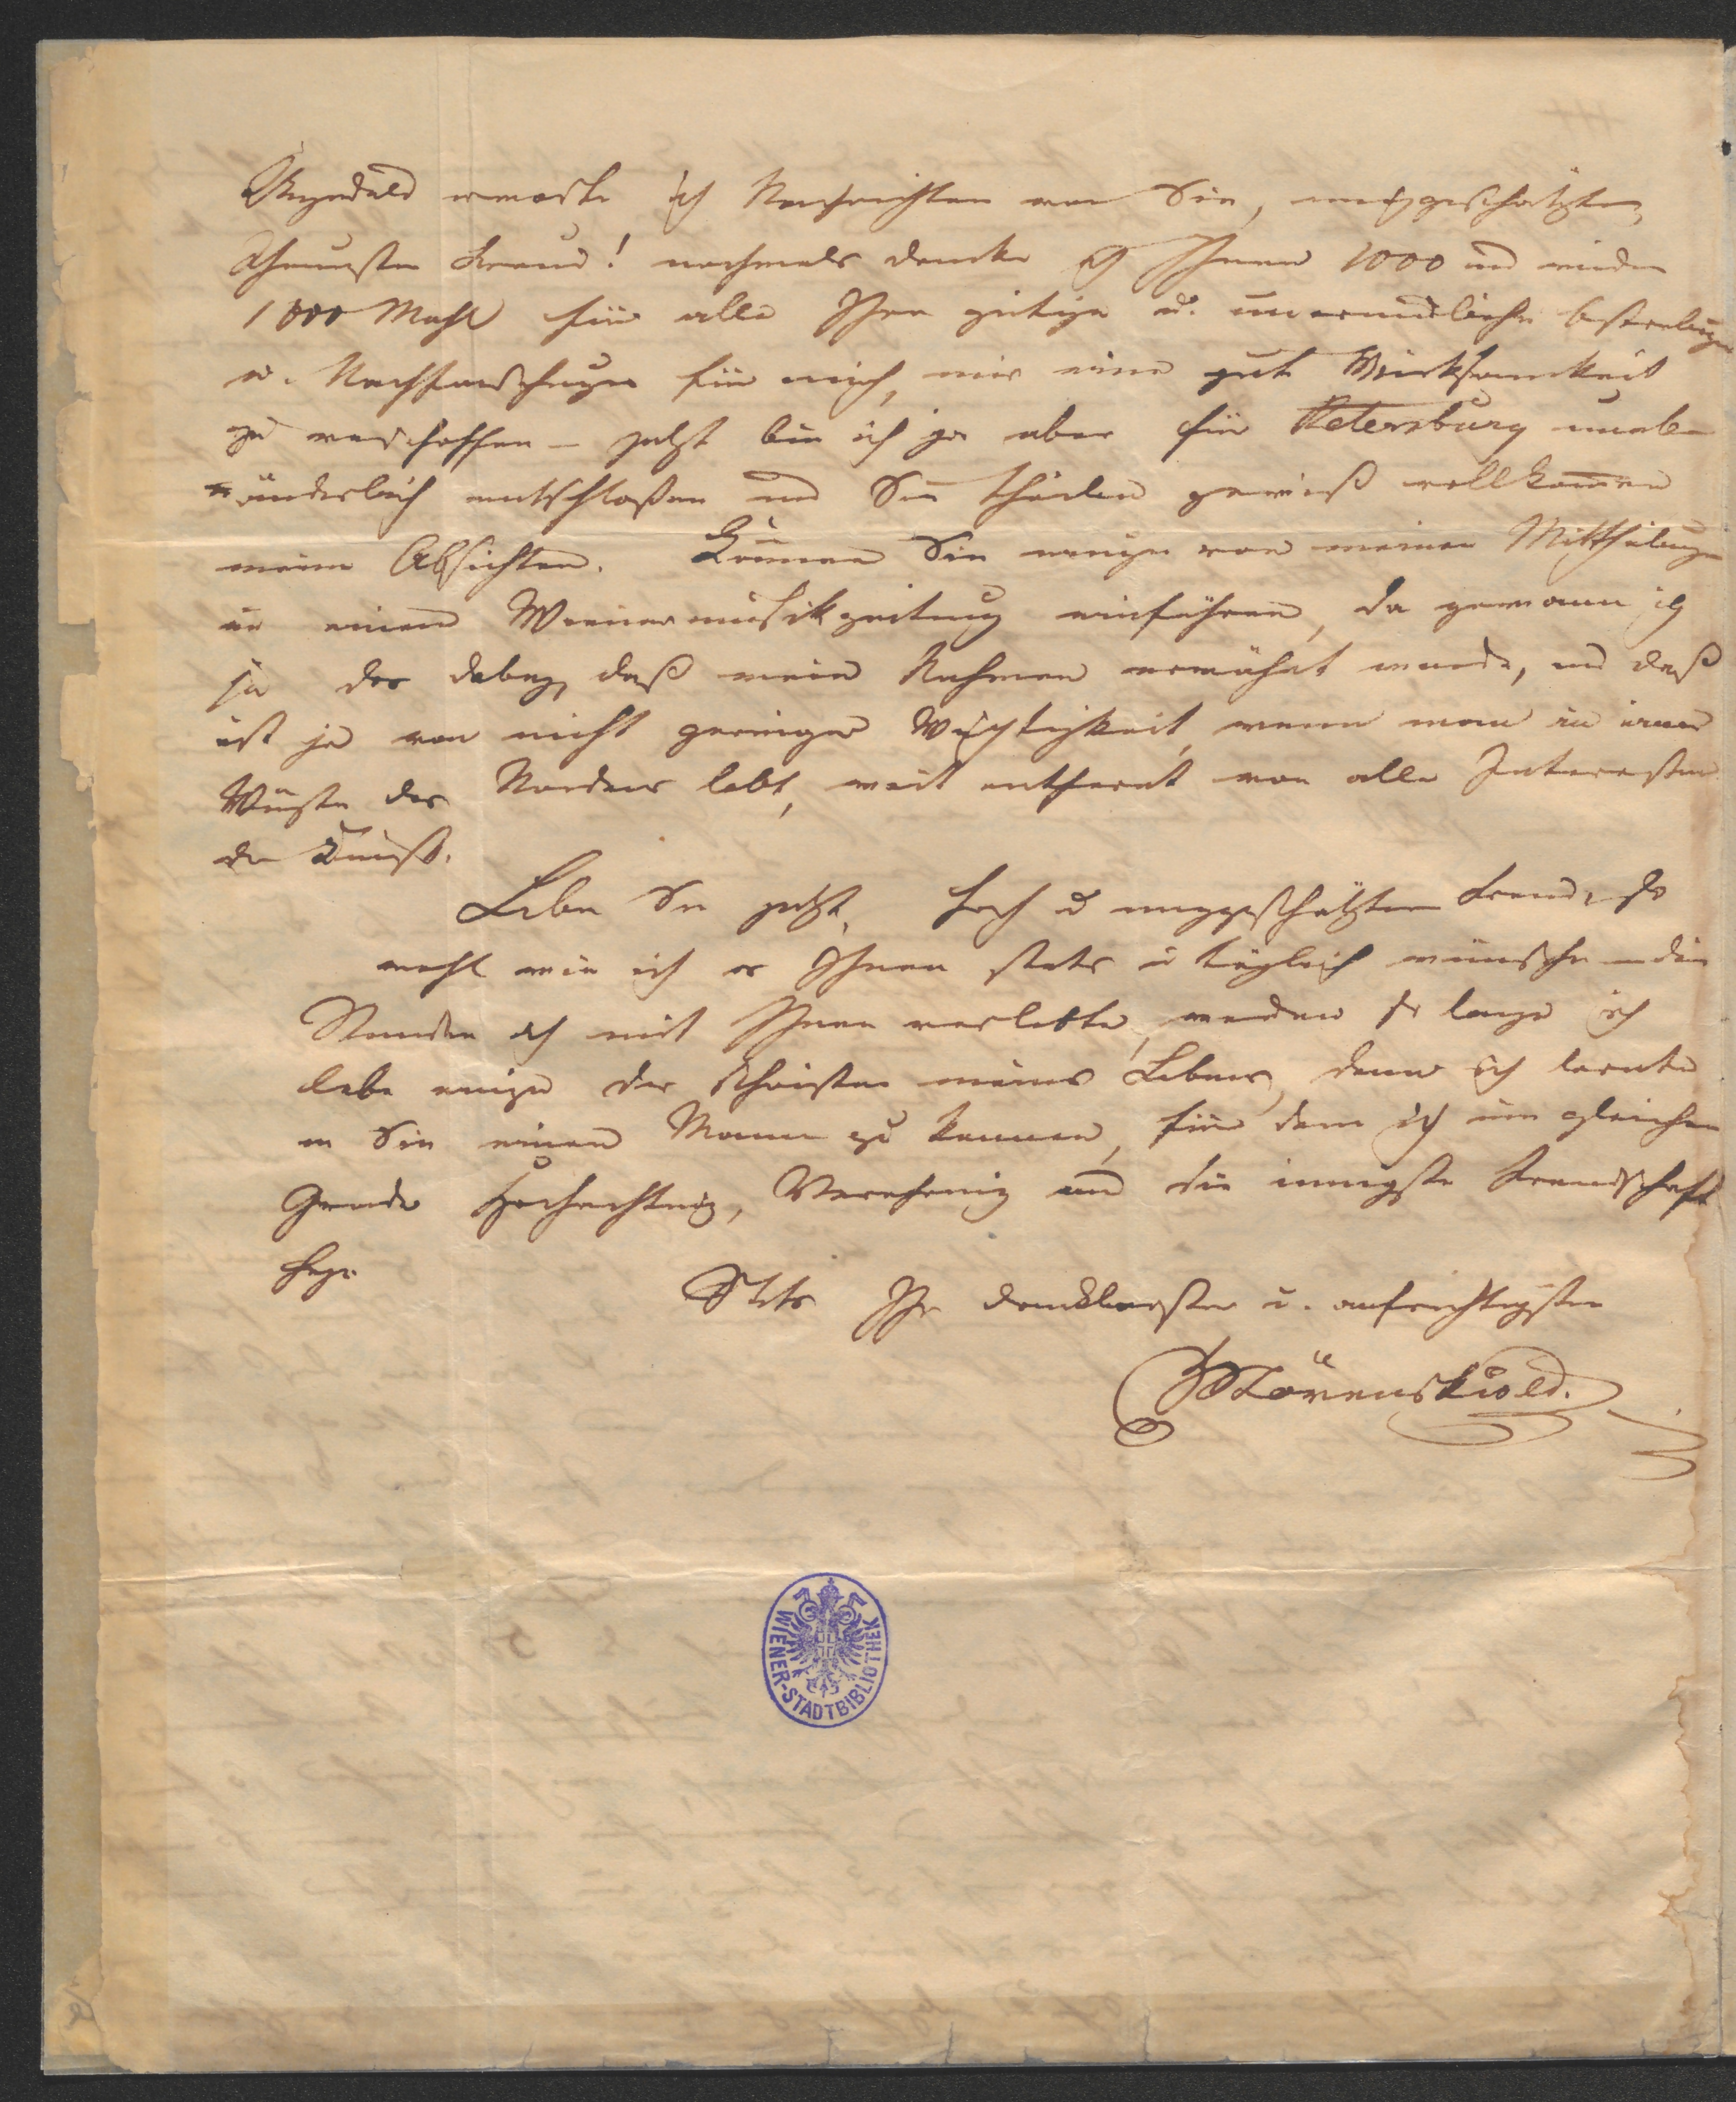 erwarte ich Nachrichten von Sie, innigstgeschätzter,
Theuerster Freund! nochmals dancke ich Ihnen 1000 und wieder
1000 Mahl für alle Ihre gütige u. unermüdliche bestrebungen
u. Nachforschungen für mich, mir eine gute Wirksamkeit
zu verschaffen – jetzt bin ich ja aber für Petersburg unab-
änderlich entschloßen und Sie theilen gewiß vollkomen
meine Absichten. Können Sie einige von meinen Mittheilungen
in einen Wienermusikzeitung einführen, da gewann ich
ja das dabey, daß mein Nahmen erwähnt wurde, und daß
ist ja von nicht geringer Wichtigkeit, wenn man in
Wüste des Nordens lebt, weit entfernt von alle Interessen
der Kunst.
Leben Sie jetzt, hoch u innigstgeschätzter Freund, so
wohl wie ich es Ihnen stets u täglich wünsche – die
Stunden ich mit Ihnen verlebte, werden so lange ich
lebe einige der meines Lebens, denn ich lernte
in Sie einen Mann zu kennen, für dem ich im gleichen
Grade Hochachtung, Verehrung und die innigste Freundschaft
hege
Stets Ihr dankbarster u. aufrichtigster
HLövenskiold.
WIENER-STADTBIBLIOTHEK